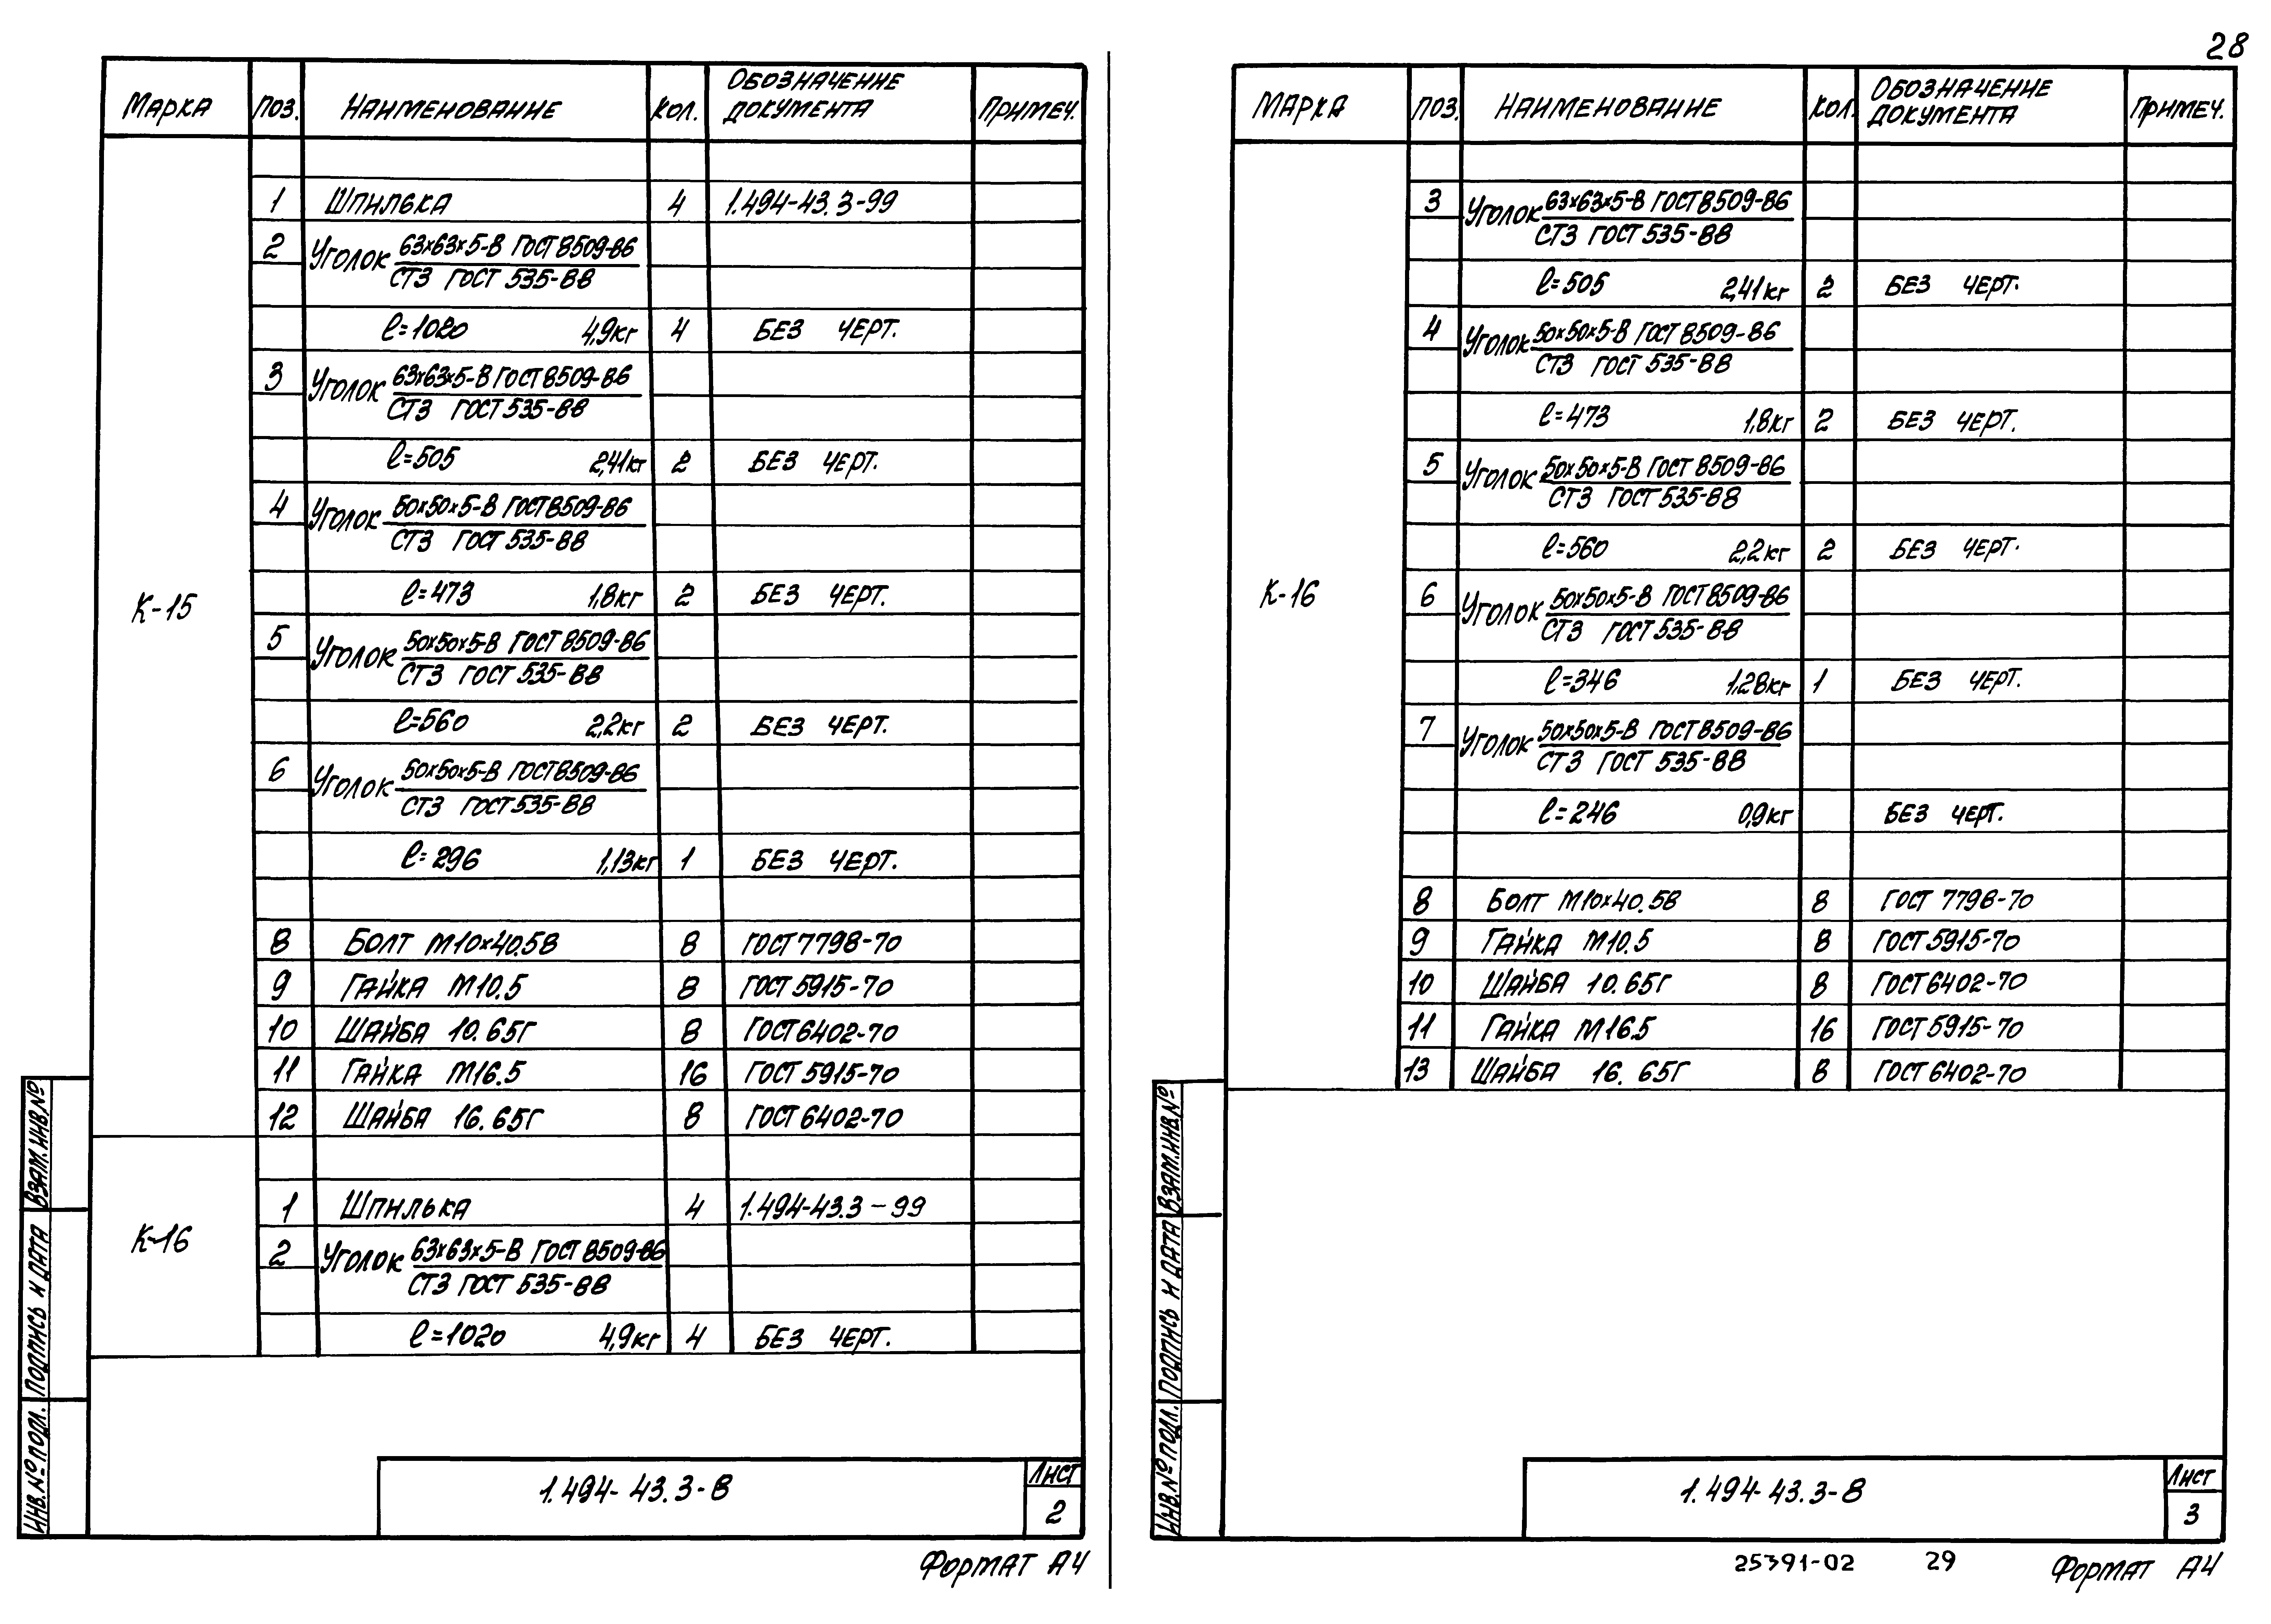 28
Марка ПОЗ. Наименование Кол. Обозначение документа Примеч.
1 Шпилька 4 1.494-43.3-99
2 Уголок 63х63х5-В ГОСТ 8509-86
СТ3 ГОСТ 535-88
ℓ=1020 4,9кг 4 БЕЗ ЧЕРТ.
3 Уголок 63х63х5-В ГОСТ 8509-86
СТ3 ГОСТ 535-88
ℓ=505 2,41кг 2 БЕЗ ЧЕРТ.
4 Уголок 50х50х5-В ГОСТ 8509-86
СТ3 ГОСТ 535-88
ℓ=473 1,8кг 2 БЕЗ ЧЕРТ.
К-15
5 Уголок 50х50х5-В ГОСТ 8509-86
СТ3 ГОСТ 535-88
ℓ=560 2,2кг 2 БЕЗ ЧЕРТ.
6 Уголок 50х50х5-В ГОСТ 8509-86
СТ3 ГОСТ 535-88
ℓ=296 1,13кг 1 БЕЗ ЧЕРТ.
8 Болт М10х40.58 8 ГОСТ 7798-70
9 Гайка М10.5 8 ГОСТ 5915-70
10 Шайба 10.65Г 8 ГОСТ 6402-70
11 Гайка М16.5 16 ГОСТ 5915-70
12 Шайба 16.65Г 8 ГОСТ 6402-70
К-16
1 Шпилька 4 1.494-43.3-99
2 Уголок 63х63х5-В ГОСТ 8509-86
СТ3 ГОСТ 535-88
ℓ=1020 4,9кг 4 БЕЗ ЧЕРТ.
ИНВ.№ПОДЛ. ПОДПИСЬ И ДАТА ВЗАМ.ИНВ.№
1.494-43.3-8
Лист
2
Формат А4
Марка ПОЗ. Наименование Кол. Обозначение документа Примеч.
3 Уголок 63х63х5-В ГОСТ 8509-86
СТ3 ГОСТ 535-88
ℓ=505 2,41кг 2 БЕЗ ЧЕРТ.
4 Уголок 50х50х5-В ГОСТ 8509-86
СТ3 ГОСТ 535-88
ℓ=473 1,8кг 2 БЕЗ ЧЕРТ.
5 Уголок 50х50х5-В ГОСТ 8509-86
СТ3 ГОСТ 535-88
ℓ=560 2,2кг 2 БЕЗ ЧЕРТ.
К-16
6 Уголок 50х50х5-В ГОСТ 8509-86
СТ3 ГОСТ 535-88
ℓ=346 1,28кг 1 БЕЗ ЧЕРТ.
7 Уголок 50х50х5-В ГОСТ 8509-86
СТ3 ГОСТ 535-88
ℓ=246 0,9кг БЕЗ ЧЕРТ.
8 Болт М10х40.58 8 ГОСТ 7798-70
9 Гайка М10.5 8 ГОСТ 5915-70
10 Шайба 10.65Г 8 ГОСТ 6402-70
11 Гайка М16.5 16 ГОСТ 5915-70
13 Шайба 16.65Г 8 ГОСТ 6402-70
ИНВ.№ПОДЛ. ПОДПИСЬ И ДАТА ВЗАМ.ИНВ.№
1.494-43.3-8
Лист
3
25391-02 29 Формат А4